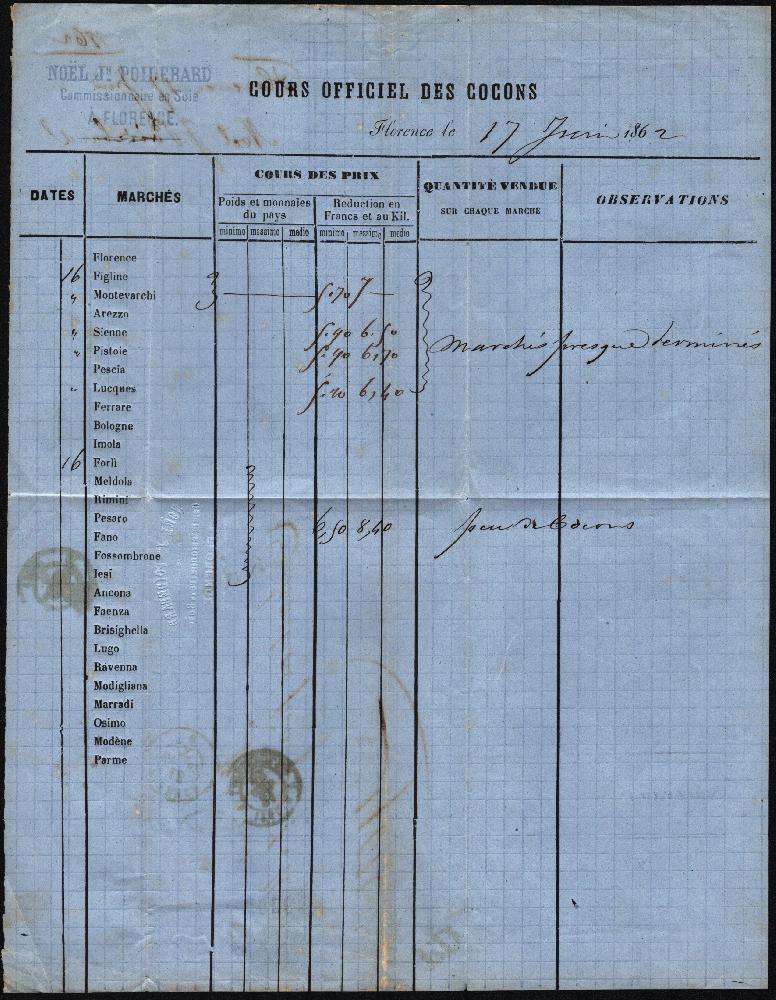 NOËL Jh POIDEBARD
Commissionnaire en Soie
A FLORENCE.
COURS OFFICIEL DES COCONS
Florence le 17 Juin 1862
DATES
MARCHÉS
COURS DES PRIX
Poids et monnaies du pays
Reduction en Francs et au Kil.
minimo massimo medio minimo massimo medio
QUANTITÉ VENDUE
SUR CHAQUE MARCHE
OBSERVATIONS
Florence
16 Figline
" Montevarchi 5.70 7
Arezzo
" Sienne 5.90 6.50
" Pistoie 5.90 6,70
Marchés presque terminés
Pescia
" Lucques 5.20 6,40
Ferrare
Bologne
Imola
16 Forlì
Meldola
Rimini
Pesaro 6,50 8,40 peu de Cocons
Fano
Fossombrone
Iesi
Ancona
Faenza
Brisighella
Lugo
Ravenna
Modigliana
Marradi
Osimo
Modène
Parme